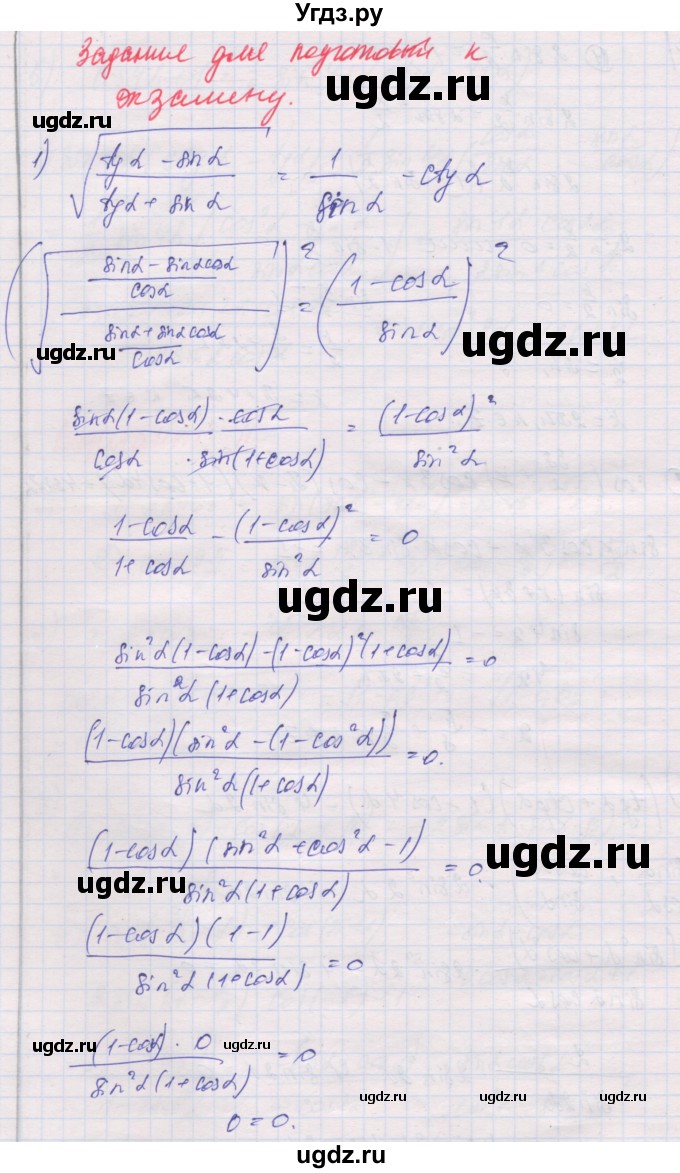 Угдз.ру
Задание для подготовки к
экзамену.
ugdz.ru
ugdz.ru
1) √((tgα - sinα)/(tgα + sinα)) = 1/sinα - ctgα
(√(((sinα - sinαcosα)/cosα)/((sinα + sinαcosα)/cosα)))² = ((1 - cosα)/sinα)²
ugdz.ru
ugdz.ru
(sinα(1-cosα) · cosα)/(cosα · sin(1+cosα)) = (1-cosα)²/sin²α
(1-cosα)/(1+cosα) - (1-cosα)²/sin²α = 0
ugdz.ru
(sin²α(1-cosα) - (1-cosα)²(1+cosα))/(sin²α(1+cosα)) = 0
((1-cosα)(sin²α - (1-cos²α)))/(sin²α(1+cosα)) = 0.
((1-cosα)(sin²α + cos²α - 1))/(sin²α(1+cosα)) = 0.
ugdz.ru
((1-cosα)(1-1))/(sin²α(1+cosα)) = 0
((1-cosα) · 0)/(sin²α(1+cosα)) = 0
ugdz.ru
ugdz.ru
ugdz.ru
ugdz.ru
0 = 0.
ugdz.ru